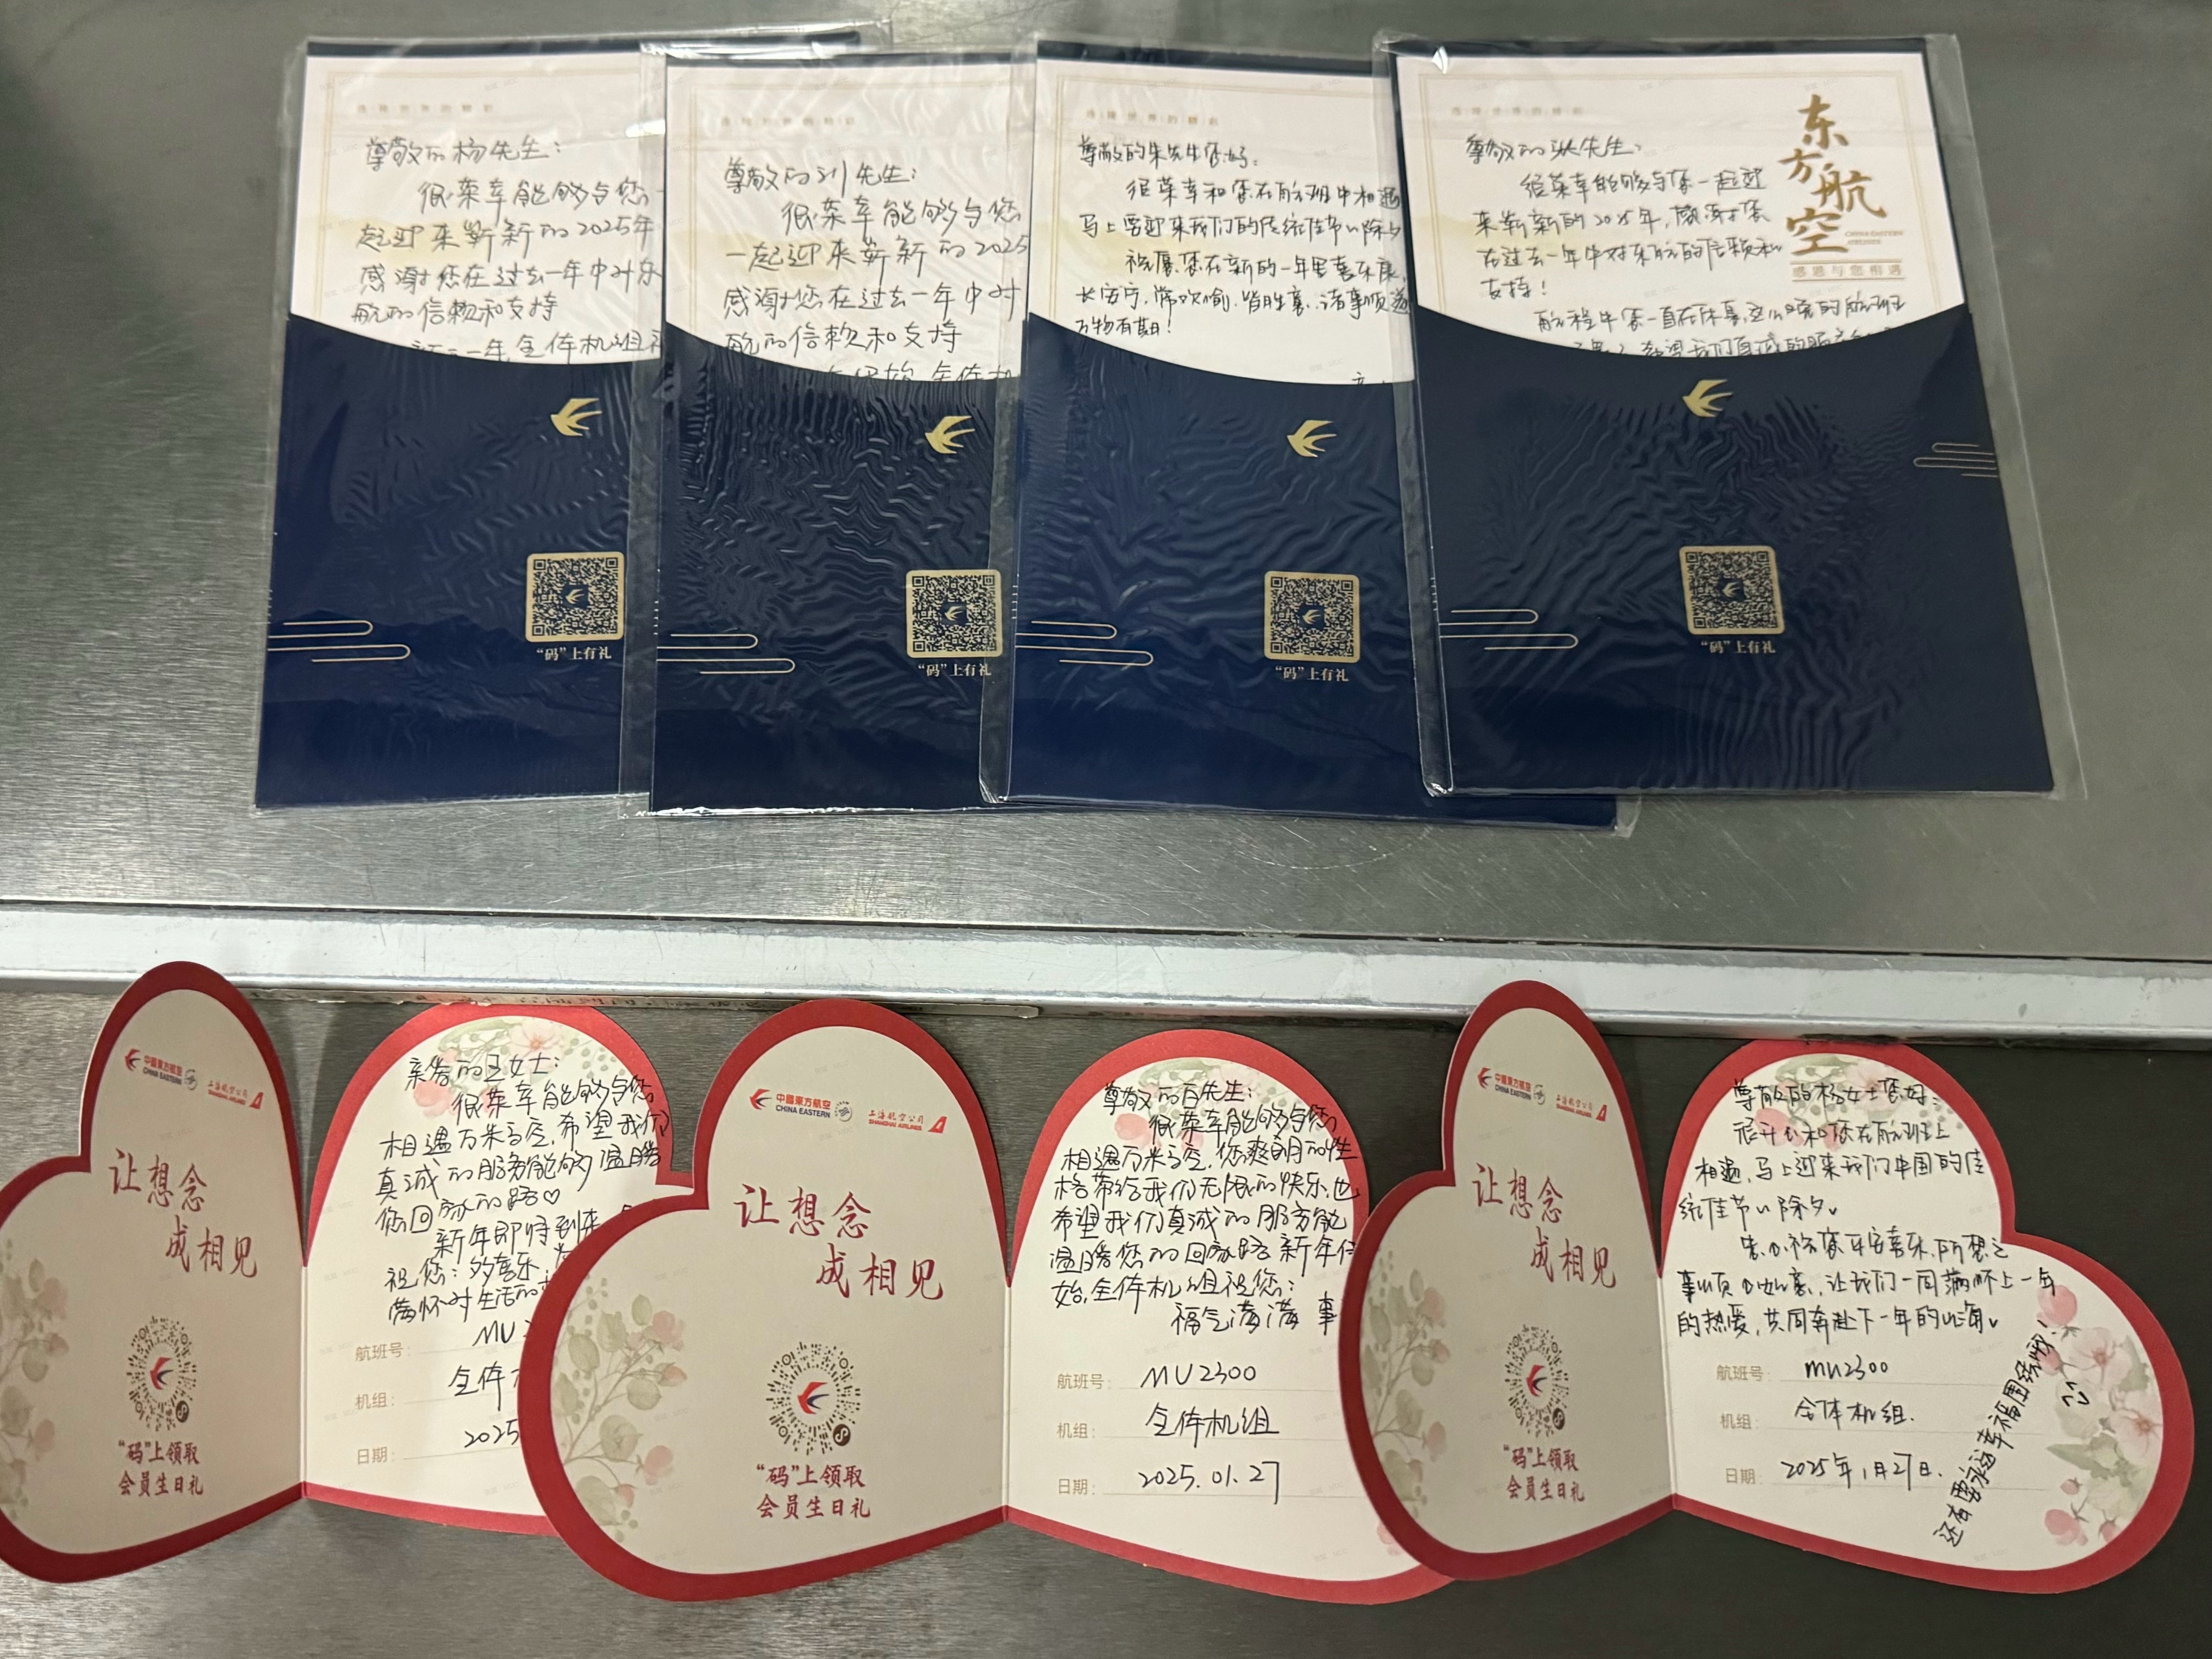 尊敬的杨先生：
很荣幸能够与您一
起迎来崭新的2025年
感谢您在过去一年中对东
航的信赖和支持
新的一年全体机组
尊敬的刘先生：
很荣幸能够与您
一起迎来崭新的2025
感谢您在过去一年中对
航的信赖和支持
尊敬的朱先生您好：
很荣幸和您在航班中相遇
马上要迎来我们的传统佳节"除夕
祝愿您在新的一年里喜乐康，
长安宁，常欢愉，皆胜意，诸事顺遂
万物有期！
尊敬的张先生：
很荣幸能够与您一起迎
来崭新的2025年，感谢您
在过去一年中对东航的信赖和
支持！
航程中您一直在休息，这么晚的航班
希望我们真诚的服务
东方航空
CHINA EASTERN
AIRLINES
感恩与您相遇
"码"上有礼
"码"上有礼
"码"上有礼
"码"上有礼
中國東方航空
CHINA EASTERN
上海航空公司
SHANGHAI AIRLINES
让想念
成相见
"码"上领取
会员生日礼
亲爱的王女士：
很荣幸能够与您
相遇万米高空，希望我们
真诚的服务能够温暖
您回家的路♡
新年即将到来
祝您：多喜乐
满怀对生活的
航班号： MU
机组： 全体
日期： 2025
中國東方航空
CHINA EASTERN
上海航空公司
SHANGHAI AIRLINES
让想念
成相见
"码"上领取
会员生日礼
尊敬的百先生：
很荣幸能够与您
相遇万米高空，您爽朗的性
格带给我们无限的快乐，也
希望我们真诚的服务能
温暖您的回家路 新年伊
始，全体机组祝您：
福气满满 事
航班号： MU2300
机组： 全体机组
日期： 2025.01.27
中國東方航空
CHINA EASTERN
上海航空公司
SHANGHAI AIRLINES
让想念
成相见
"码"上领取
会员生日礼
尊敬的杨女士您好：
很开心和您在航班上
相遇，马上迎来我们中国的传
统佳节"除夕"
衷心祝愿平安喜乐，所想之
事顺心如意，让我们一同满怀上一年
的热爱，共同奔赴下一年的山海。
还有要永远幸福团结哦！
航班号： mu2300
机组： 全体机组.
日期： 2025年1月27日.